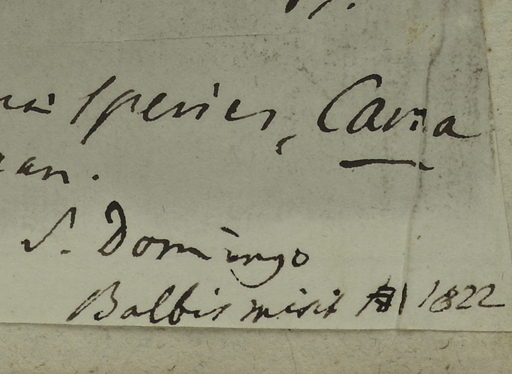 species, Cavia
S. Domingo
Balbis misit 1822